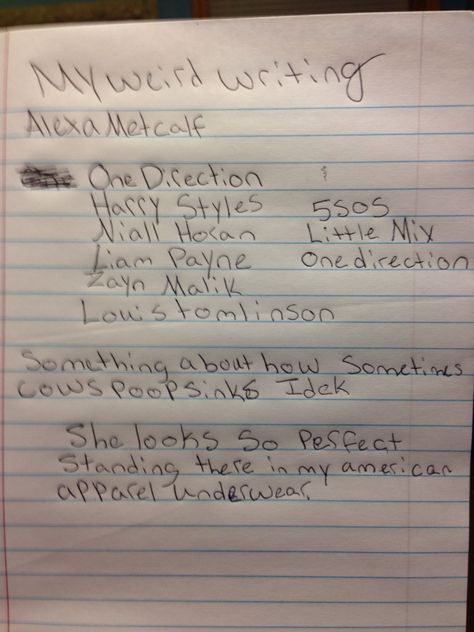 My weird writing
Alexa Metcalf
One Direction
Harry Styles 5SOS
Niall Horan Little Mix
Liam Payne One direction
Zayn Malik
Louis tomlinson
Something about how sometimes
cows poop sinks Idek
She looks so perfect
standing there in my american
apparel underwear.